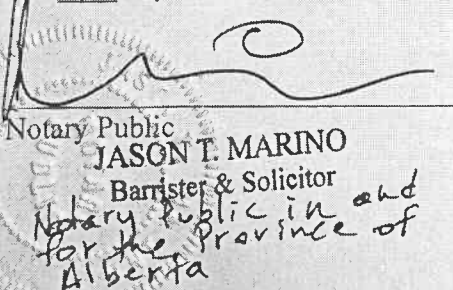 Notary Public
JASON T. MARINO
Barrister & Solicitor
Notary Public in and
for the Province of
Alberta